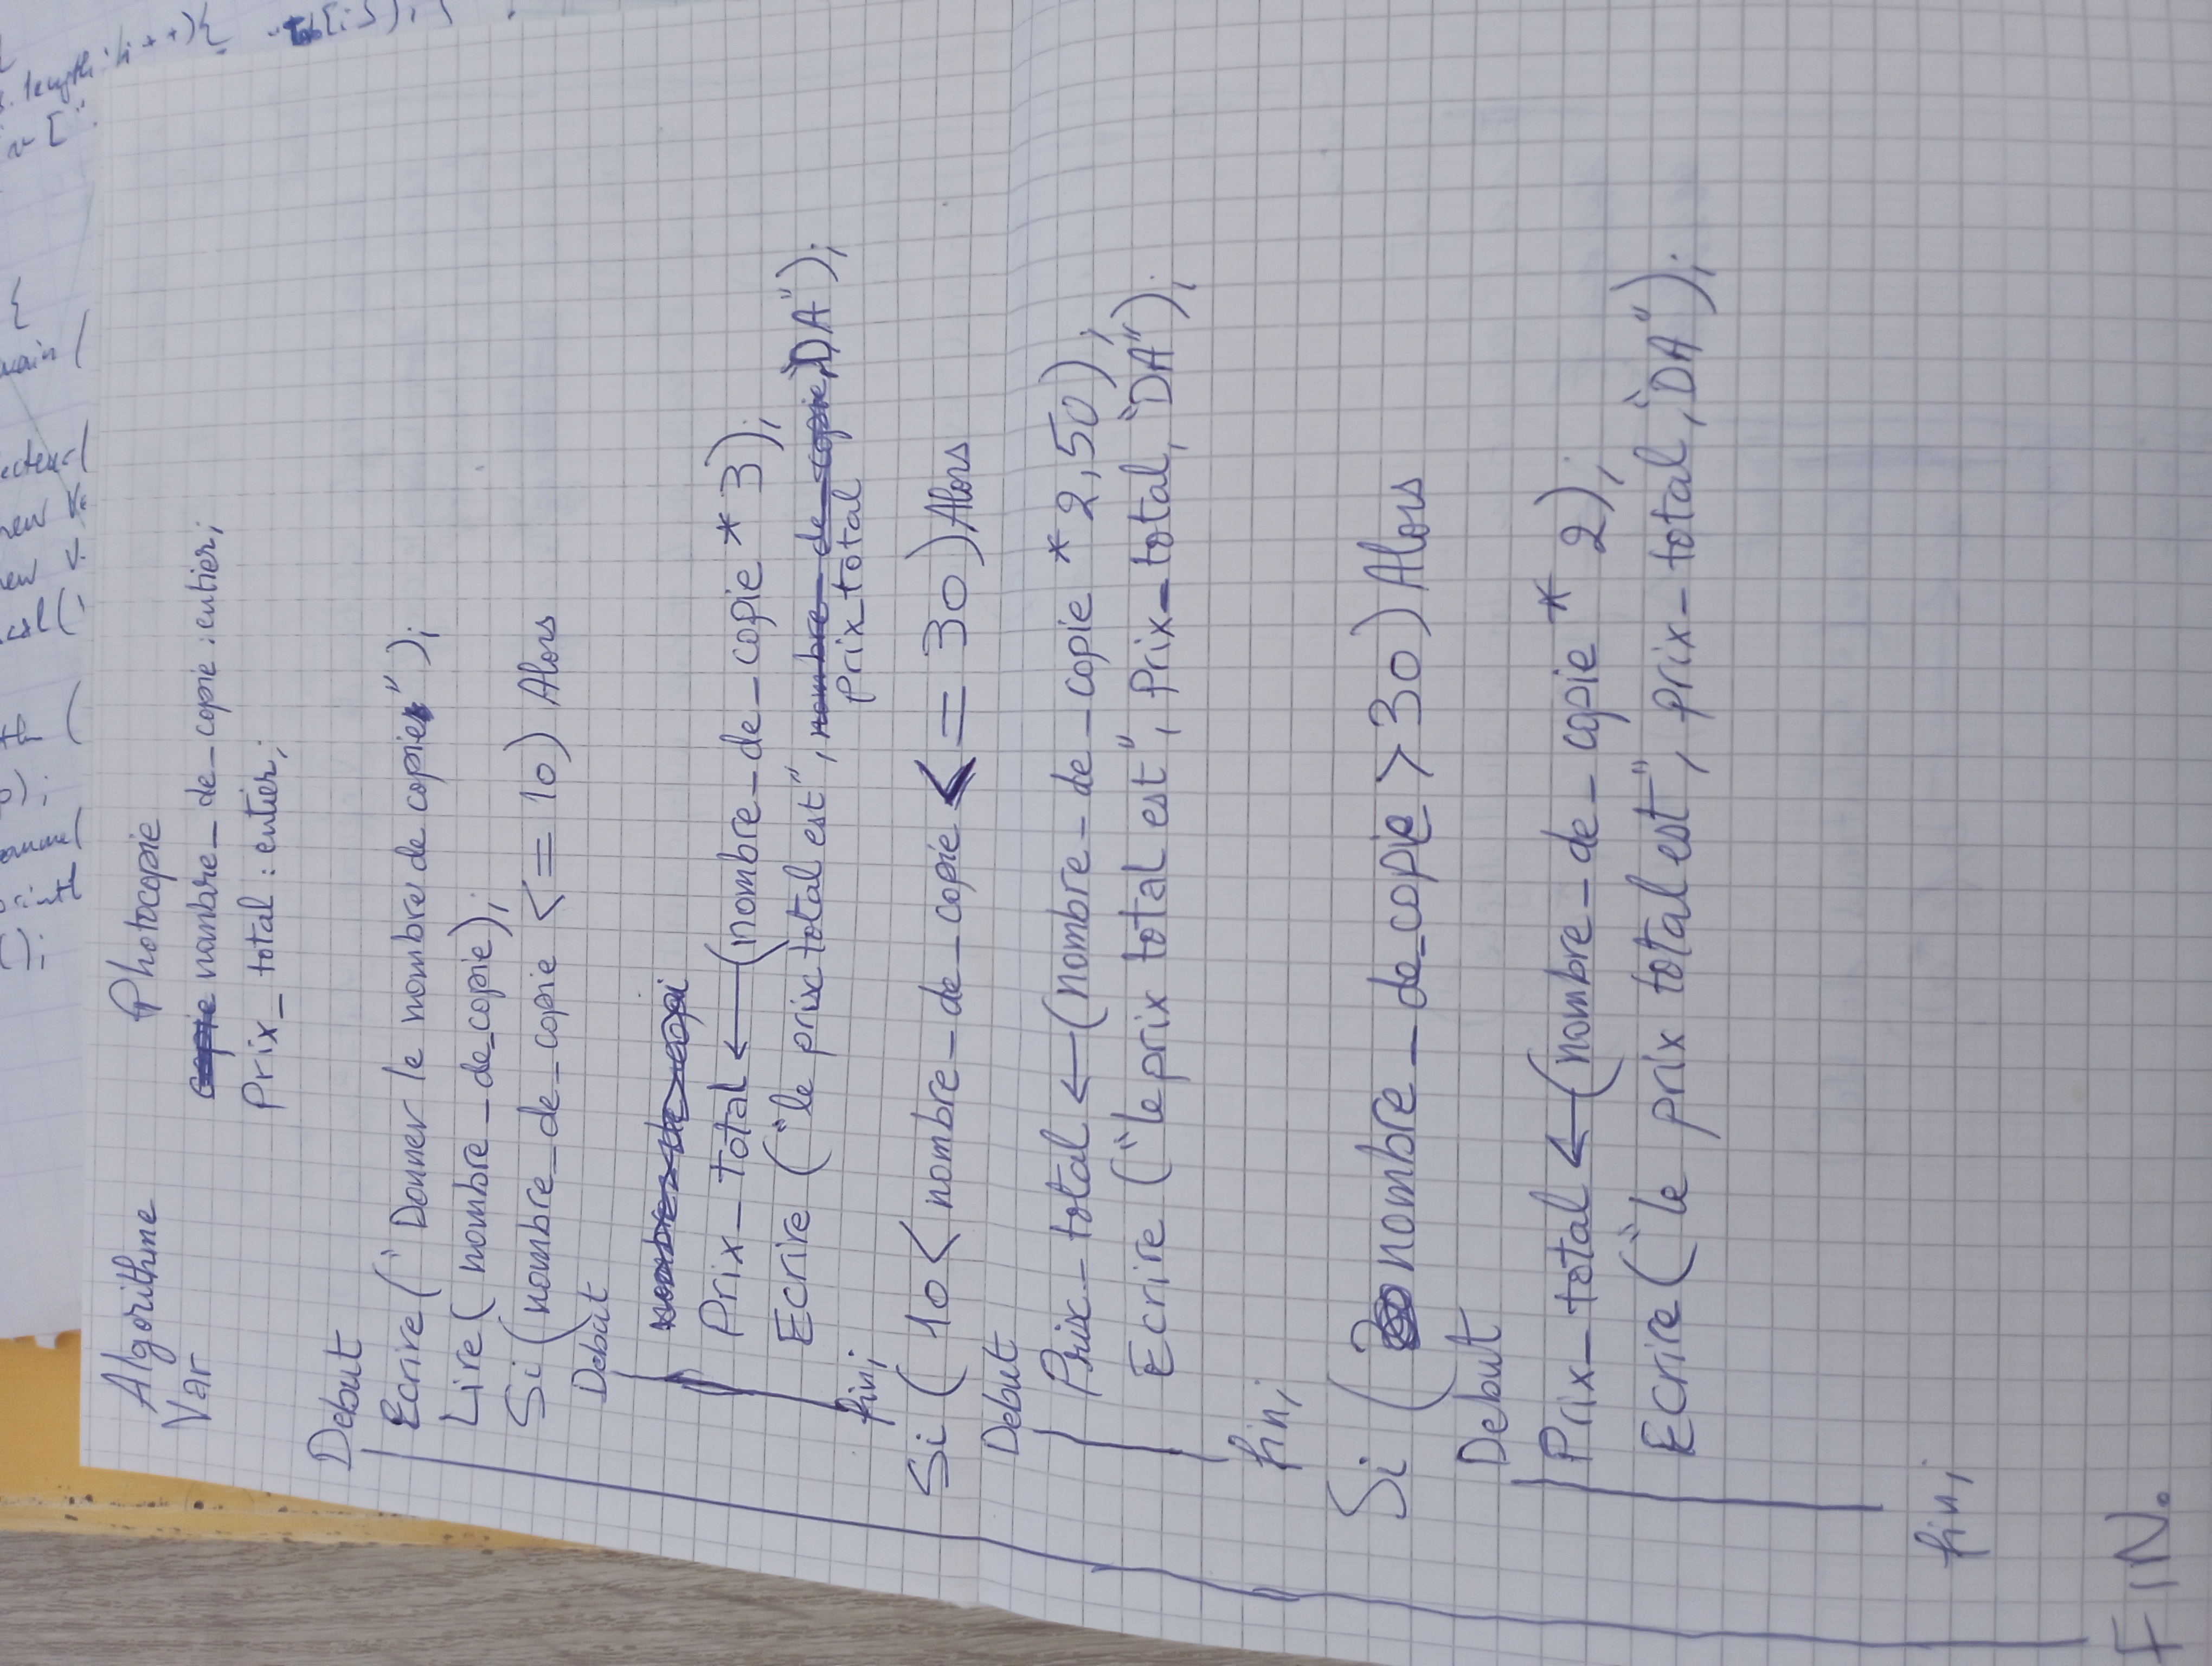 Algorithme Photocopie
Var copie nombre_de_copie : entier;
Prix_total : entier;
Debut
Ecrire ("Donner le nombre de copie");
Lire ( nombre_de_copie);
Si (nombre_de_copie <= 10) Alors
Debut
nombre_de_copi
Prix_total ← (nombre_de_copie * 3);
Ecrire ("le prix total est", nombre_de_copie, "DA");
prix_total
fin;
Si ( 10 < nombre_de_copie <= 30 ) Alors
Debut
Prix_total ← (nombre_de_copie * 2,50);
Ecrire ("le prix total est", Prix_total, "DA");
fin;
Si ( nombre_de_copie > 30 ) Alors
Debut
Prix_total ← (nombre_de_copie * 2);
Ecrire ("le prix total est", prix_total, "DA");
fin;
FIN.